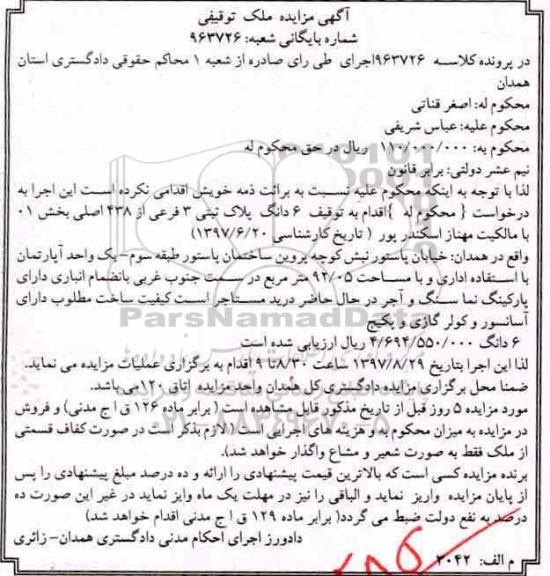 آگهی مزایده ملک توقیفی
شماره بایگانی شعبه: ۹۶۳۷۲۶
در پرونده کلاسه ۹۶۳۷۲۶اجرای طی رای صادره از شعبه ۱ محاکم حقوقی دادگستری استان
همدان
محکوم له: اصغر قناتی
محکوم علیه: عباس شریفی
محکوم به: ۱۱۰/۰۰۰/۰۰۰ ریال در حق محکوم له
نیم عشر دولتی: برابر قانون
لذا با توجه به اینکه محکوم علیه نسبت به برائت ذمه خویش اقدامی نکرده است این اجرا به
درخواست { محکوم له } اقدام به توقیف ۶ دانگ پلاک ثبتی ۳ فرعی از ۴۳۸ اصلی بخش ۰۱
با مالکیت مهناز اسکندر پور ( تاریخ کارشناسی ۱۳۹۷/۶/۲۰)
واقع در همدان: خیابان پاستور نبش کوچه پروین ساختمان پاستور طبقه سوم- یک واحد آپارتمان
با استفاده اداری و با مساحت ۹۲/۰۵ متر مربع در سمت جنوب غربی بانضمام انباری دارای
پارکینگ نما سنگ و آجر در حال حاضر درید مستاجر است کیفیت ساخت مطلوب دارای
آسانسور و کولر گازی و پکیج
ParsNamadData
۶ دانگ ۴/۶۹۴/۵۵۰/۰۰۰ ریال ارزیابی شده است
لذا این اجرا بتاریخ ۱۳۹۷/۸/۲۹ ساعت ۸/۳۰تا ۹ اقدام به برگزاری عملیات مزایده می نماید.
ضمنا محل برگزاری مزایده دادگستری کل همدان واحد مزایده اتاق ۱۲۰می باشد.
مورد مزایده ۵ روز قبل از تاریخ مذکور قابل مشاهده است ( برابر ماده ۱۲۶ ق ا ج مدنی) و فروش
در مزایده به میزان محکوم به و هزینه های اجرایی است(لازم بذکر است در صورت کفاف قسمتی
از ملک فقط به صورت شعیر و مشاع واگذار خواهد شد).
برنده مزایده کسی است که بالاترین قیمت پیشنهادی را ارائه و ده درصد مبلغ پیشنهادی را پس
از پایان مزایده واریز نماید و الباقی را نیز در مهلت یک ماه وایز نماید در غیر این صورت ده
درصد به نفع دولت ضبط می گردد( برابر ماده ۱۲۹ ق ا ج مدنی اقدام خواهد شد)
دادورز اجرای احکام مدنی دادگستری همدان- زائری
م الف: ۳۰۴۲